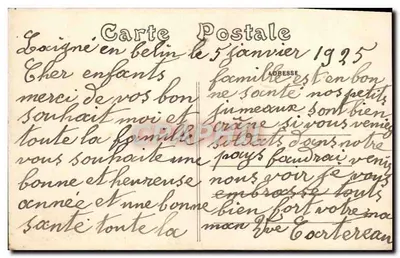 Carte Postale
Laigné en belin le 5 janvier 1925
ADRESSE
Cher enfants
merci de vos bon
souhait moi et
toute la famille
vous souhaite une
bonne et heureuse
année et une bonne
santé toute la
famille est en bon
ne santé nos petits
jumeaux sont bien
si vous venies
dans notre
pays faudrai venir
nous voir je vous
embrasse touts
bien fort votre ma
man Vve Tortereau